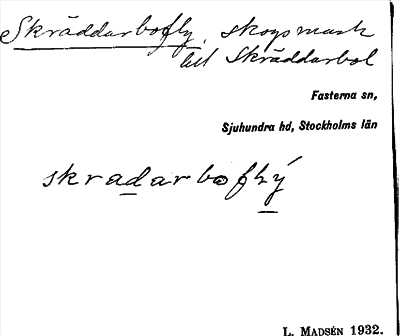 Skräddarbofly, skogsmark
till Skräddarbol
Fasterna sn,
Sjuhundra hd, Stockholms län
skradarboflý
L. MADSÉN 1932.